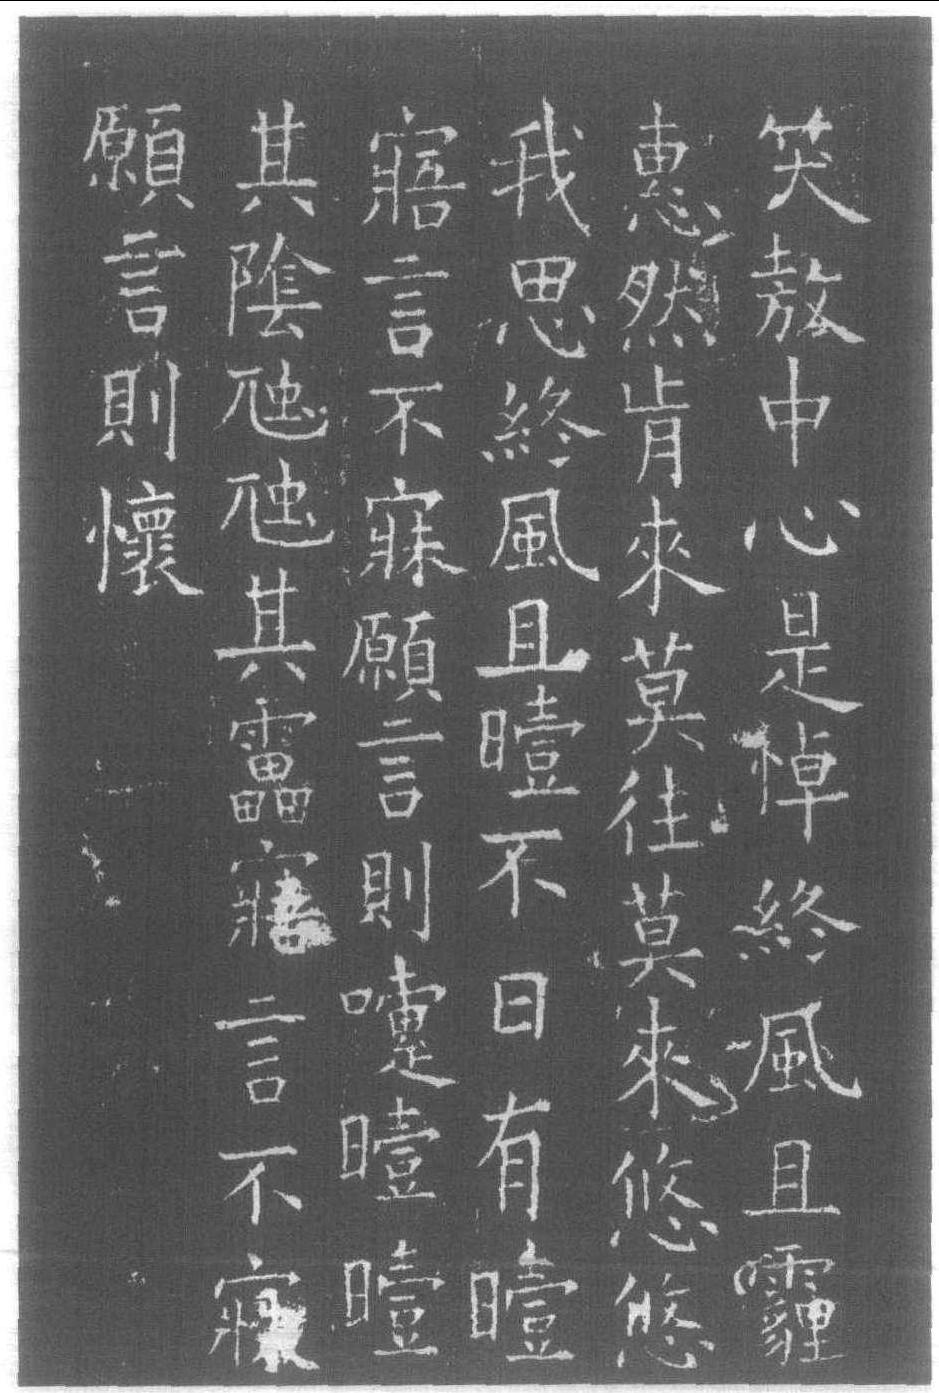 笑敖中心是悼終風且霾
惠然肯來莫往莫來悠悠
我思終風且曀不日有曀
寤言不寐願言則嚔曀曀
其陰虺虺其靁寤言不寐
願言則懷